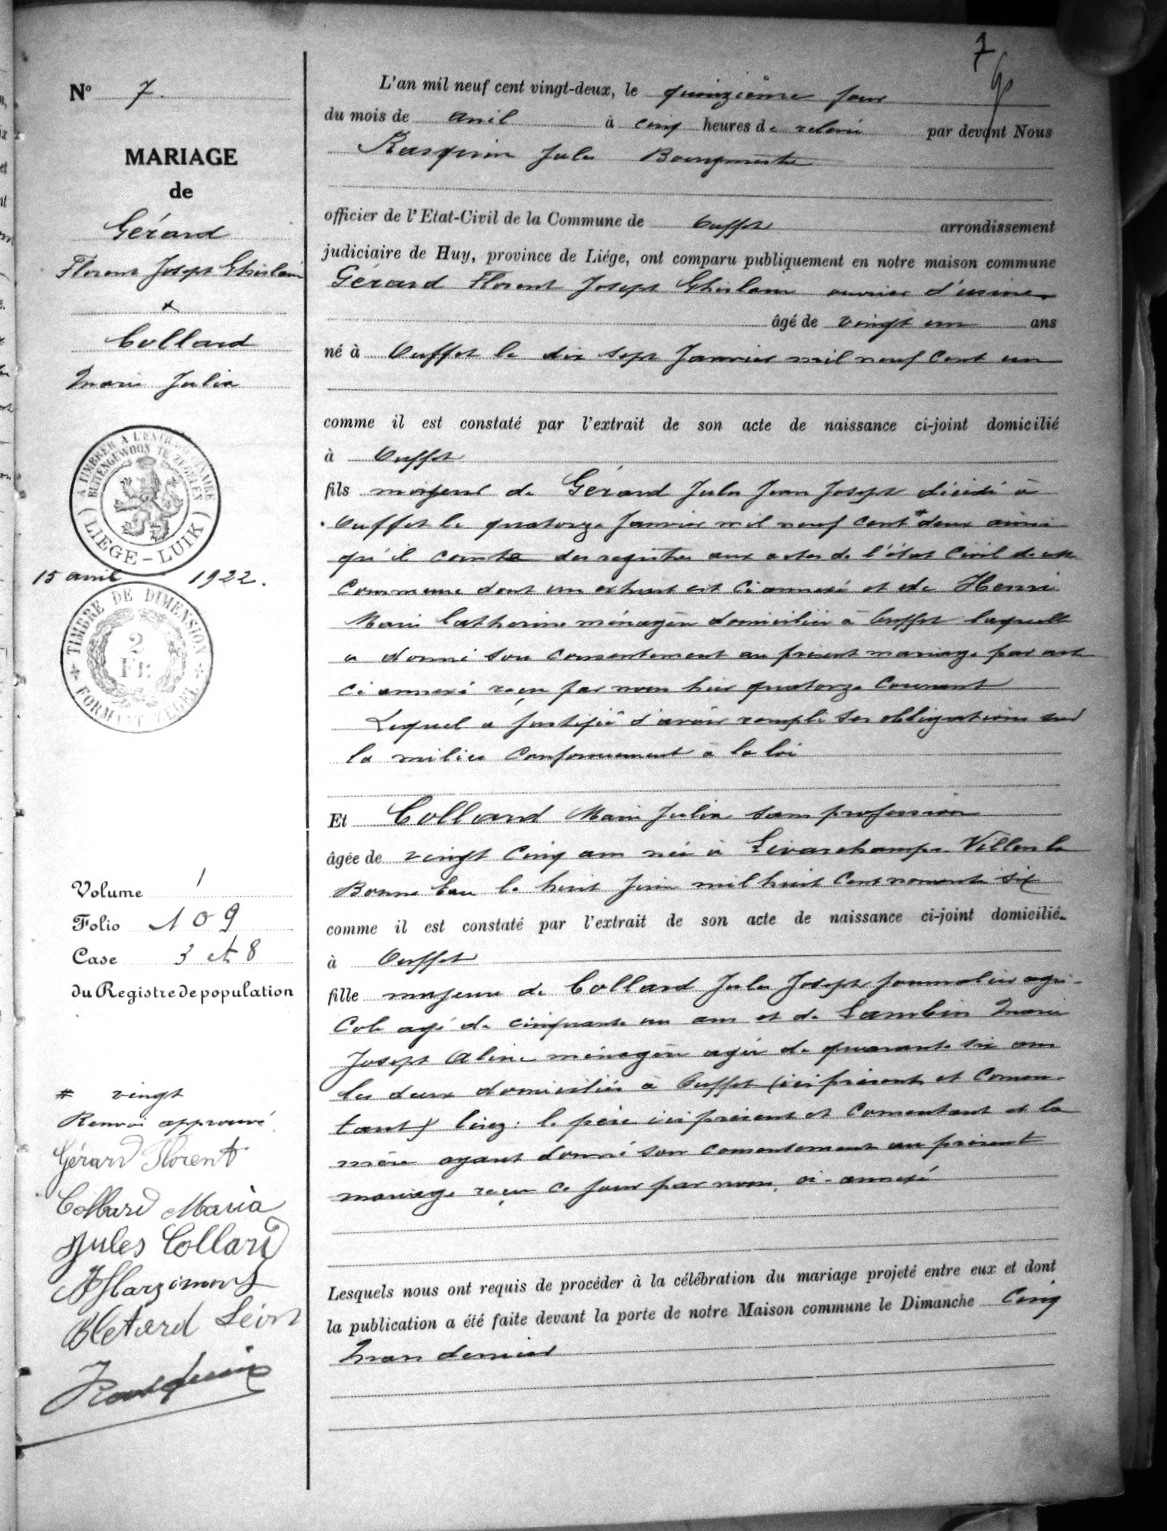 7
Nº 7
MARIAGE
de
Gérard
Florent Joseph Ghislain
x
Collard
Marie Julia
A TIMBRER A L'EXTRAORDINAIRE
BUITENGEWOON TE ZEGELEN
( LIEGE - LUIK )
15 avril 1922.
TIMBRE DE DIMENSION
2
Fr.
FORMAAT ZEGEL
Volume 1
Folio 109
Case 3 et 8
du Registre de population
# vingt
Renvoi approuvé
Gérard Florent
Collard Maria
Jules Collard
Blétard Léon
Rasquin
L'an mil neuf cent vingt-deux, le quinzième jour
du mois de avril à cinq heures de relevée par devant Nous
Rasquin Jules Bourgmestre
officier de l'Etat-Civil de la Commune de Ouffet arrondissement
judiciaire de Huy, province de Liége, ont comparu publiquement en notre maison commune
Gérard Florent Joseph Ghislain ouvrier d'usine
âgé de vingt un ans
né à Ouffet le dix sept Janvier mil neuf cent un
comme il est constaté par l'extrait de son acte de naissance ci-joint domicilié
à Ouffet
fils majeur de Gérard Jules Jean Joseph décédé à
Ouffet le quatorze Janvier mil neuf cent # deux ainsi
qu'il conste des registres aux actes de l'état Civil de cette
Commune dont un extrait est ci annexé et de Henri
Marie Catherine ménagère domiciliée à Ouffet laquelle
a donné son consentement au présent mariage par acte
ci annexé reçu par nous hier quatorze Courant
Lequel a justifié d'avoir rempli ses obligations sur
la milice conformément à la loi
Et Collard Marie Julia sans profession
âgée de vingt cinq ans née à Livarchamps Villers la
Bonne Eau le huit Juin mil huit cent nonante six
comme il est constaté par l'extrait de son acte de naissance ci-joint domicilié.
à Ouffet
fille majeure de Collard Jules Joseph journalier agri-
cole agé de cinquante un ans et de Lambin Marie
Joseph Aline ménagère agée de quarante six ans
les deux domiciliés à Ouffet (ici présents et consen-
tant) lisez : le père ici présent et consentant et la
mère ayant donné son consentement au présent
mariage reçu ce jour par nous, ci-annexé
Lesquels nous ont requis de procéder à la célébration du mariage projeté entre eux et dont
la publication a été faite devant la porte de notre Maison commune le Dimanche Cinq
Mars dernier